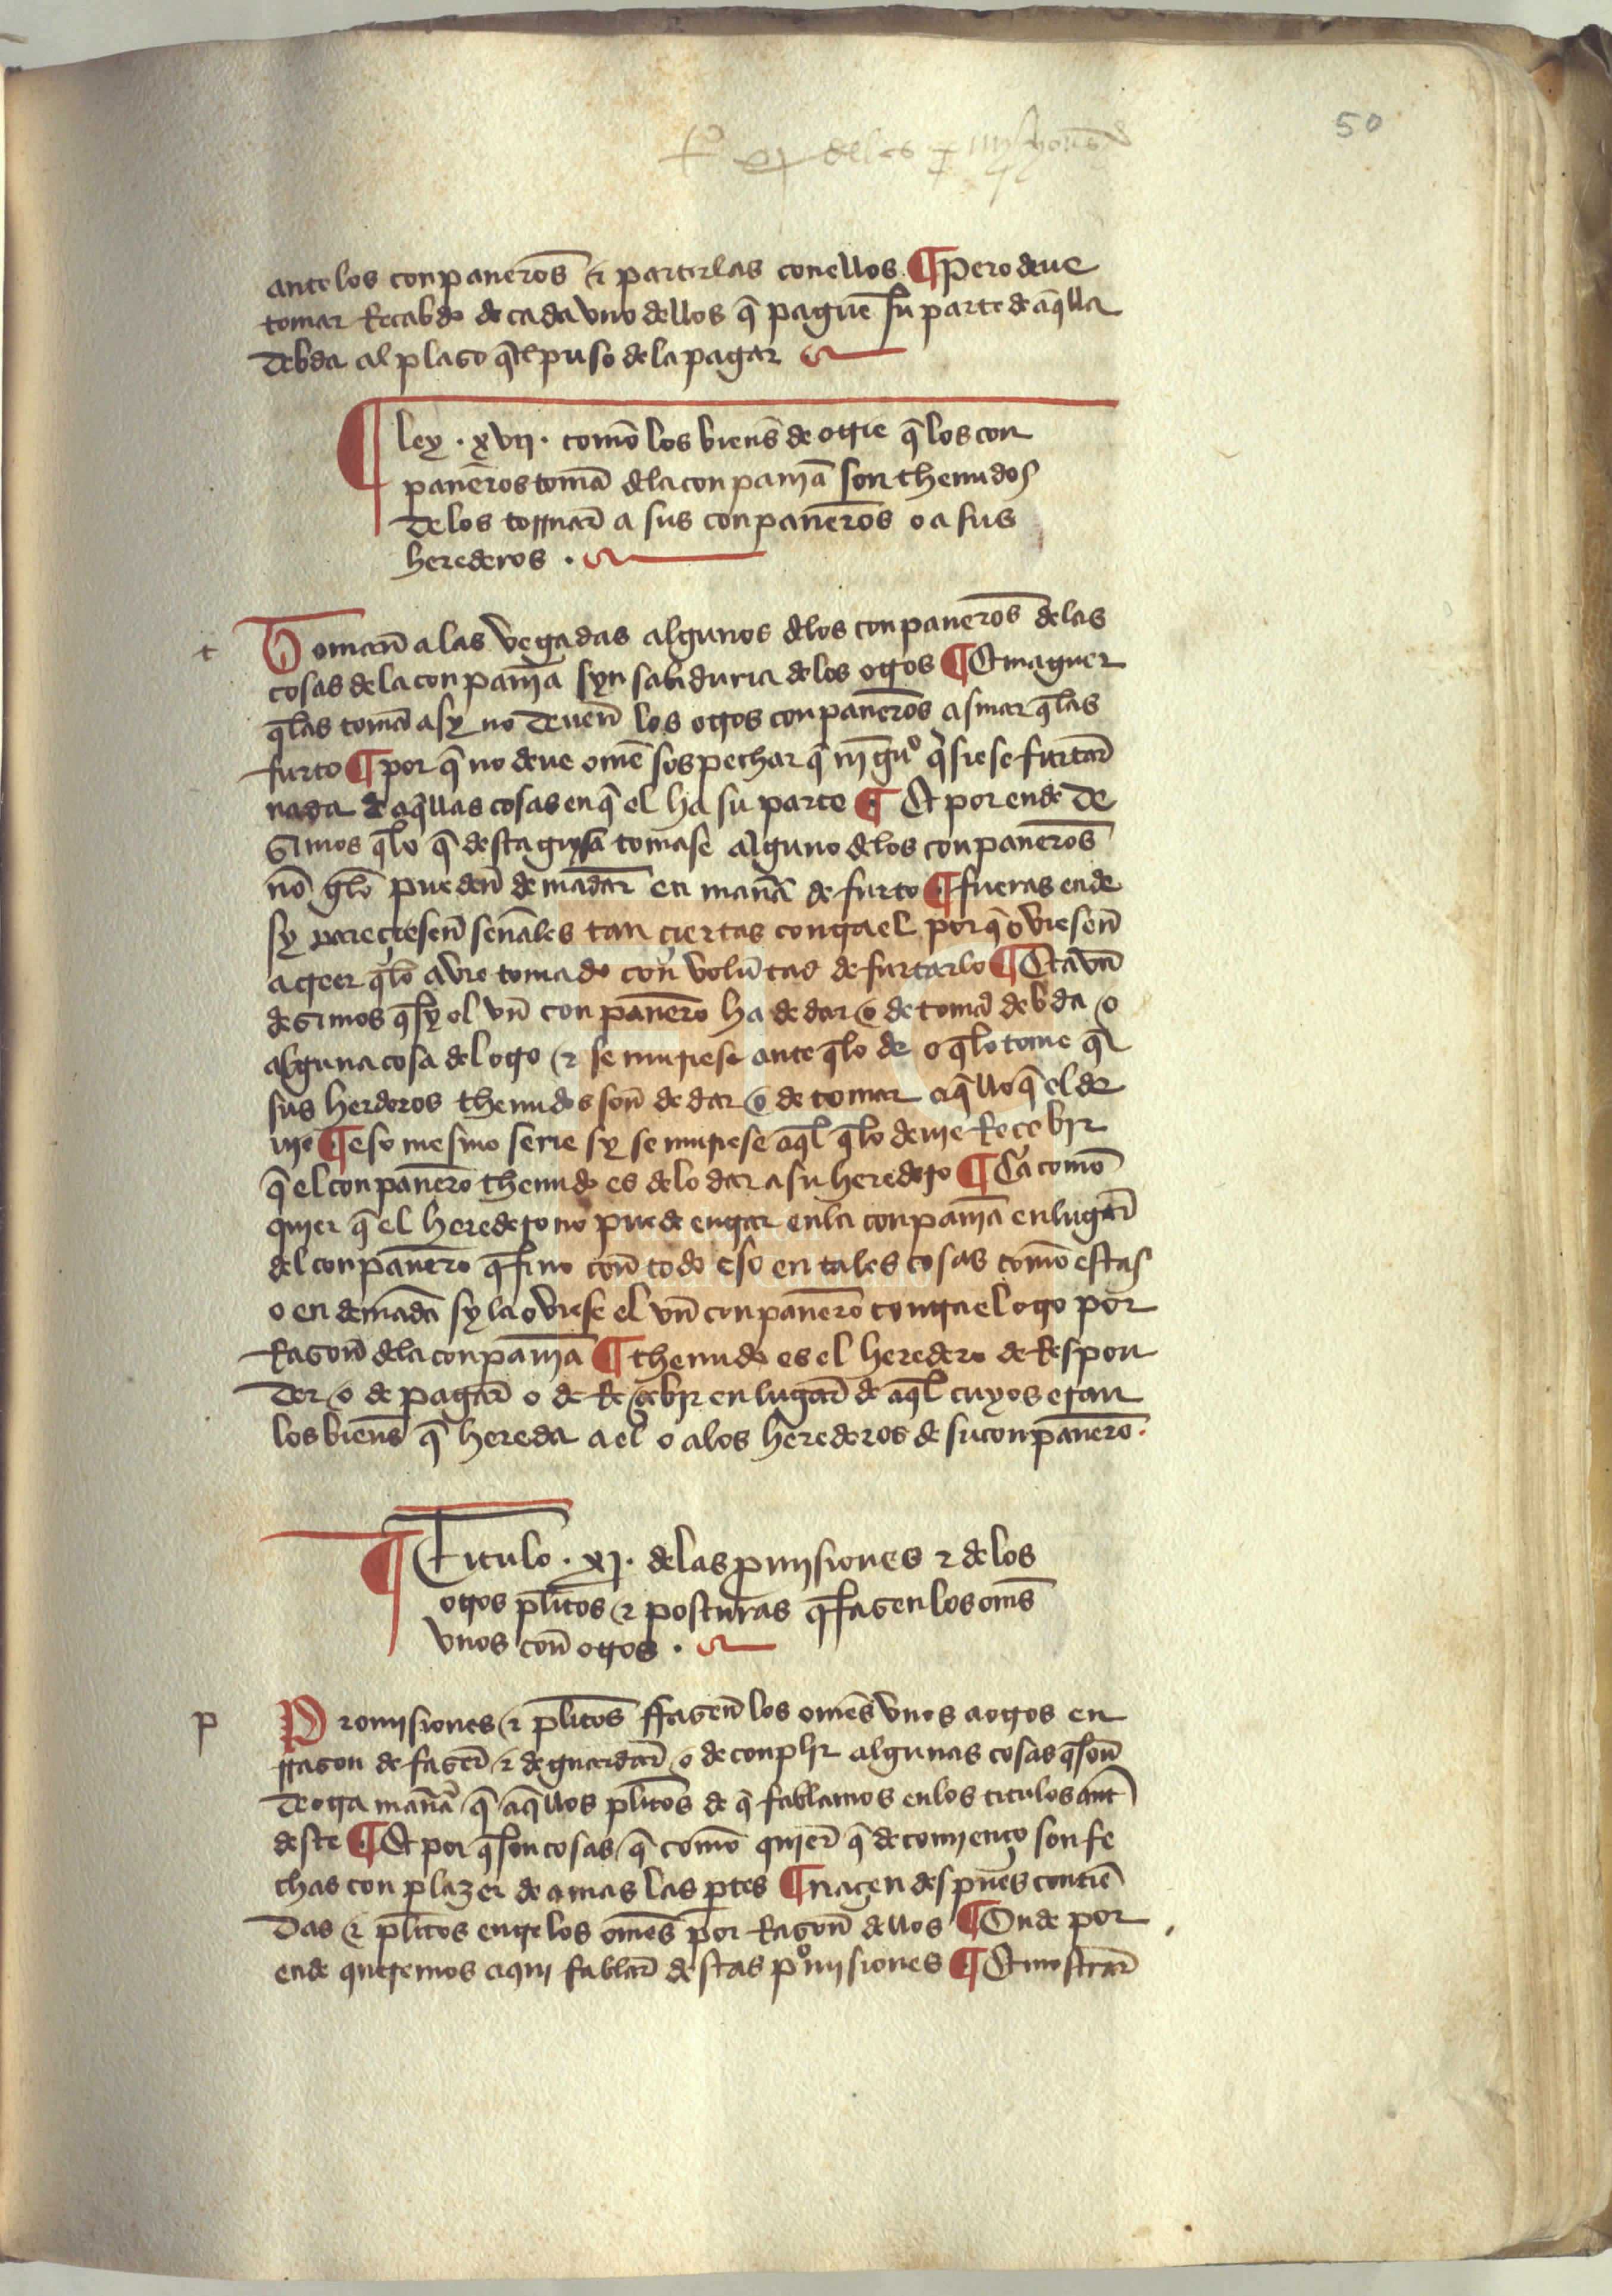 50
tº xj delas
ante los conpaneros̄ & partirlas con ellos ¶ Pero deue
tomar Recabdo de cada vno dellos q̄ pague su parte de aq̄lla
debda al plaso q̄l puso de la pagar
¶ ley . xvij . comō los bienes̄ de otrie q̄ los con
paneros toman̄ dela conpanīa son thenudos
de los tornar̄ a sus conpaneros̄ o a sus
herederos .
t Toman̄ a las vegadas algunos delos conpaneros̄ delas
cosas de la conpanīa syn sabiduria de los otros ¶ Et maguer
q̄ las toman̄ asy no deuen̄ los otros conpaneros̄ asmar q̄ las
furto ¶ por q̄ no deue ome sospechar q̄ ningūº q̇siese furtar̄
nada de aq̄llas cosas en q̄ el ha su parte ¶ Et por ende de
simos q̄ lo q̄ desta guysa tomase alguno delos conpaneros̄
nō gelo pueden̄ demādar en manā de furto ¶ fueras ende
sy pareçiesen̄ senāles tan çiertas contra el por q̄ oviesen̄
a creer q̄ lo avie tomado con̄ volūtad de furtarlo ¶ Et avn̄
desimos q̄ sy el vn̄ conpanero̅ ha de dar o de tomar̄ debda o
alguna cosa del otro & se muriese ante q̄ lo de o q̄ lo tome q̄
sus herderos thenudos son̄ de dar o de tomar aq̄llo q̄ el de
uie ¶ eso mesmo serie sy se muriese aq̄l q̄ lo deuie Reçebir
q̄ el conpanero̅ thenudo es de lo dar a su heredero ¶ Ca comō
quier q̄ el heredero nō puede entrar en la conpanīa en lugar̄
del conpanero̅ q̄ fino con̄ todo eso en tales cosas comō estas
o en demāda sy la oviese el vn̄ conpanero̅ contra el otro por
Rason̄ dela conpanīa ¶ thenudo es el heredero de Respon
der o de pagar̄ o de Reçebir en lugar̄ de aq̄l cuyos eran
los bienes̄ q̄ hereda a el o a los herederos de su conpanero̅ .
¶ Titulo . xj . delas p̄misiones & de los
otros pl̄itos & posturas q̄ fasen los omēs
vnos con̄ otros .
p Promisiones & pl̄itos ffasen̄ los omēs vnos a otros en
rrason de faser̄ & de guardar̄ o de conplir algunas cosas q̄ son̄
de otra manā q̄ aq̄llos pl̄itos de q̄ fablamos en los titulos ant̄
deste ¶ Et por q̄ son cosas q̄ comō quier̄ q̄ de comienço son fe
chas con plazer de amas las p̄tes ¶ naçen despues̄ contiē
das & pl̄itos entre los omēs por Rason̄ dellos ¶ Onde por
ende queremos aqui fablar̄ destas pºmisiones ¶ Et mostrar̄